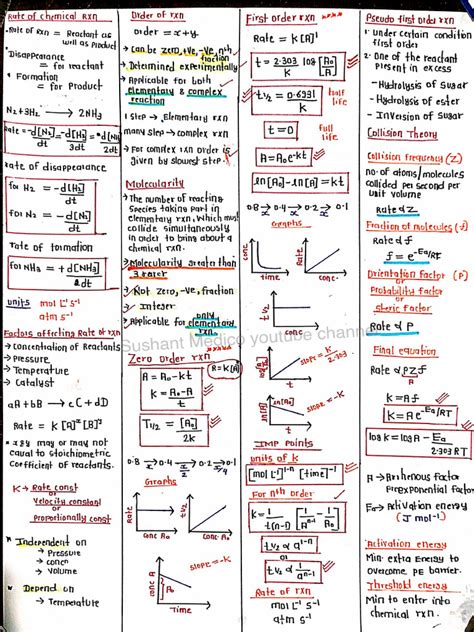 Rate of chemical rxn
→Rate of Rxn = Reactant as
well as Product
*Disappearance
= for reactant
* Formation
= for Product
N2+3H2 → 2NH3
Rate = -d[N2]/dt = -d[H2]/3dt = +d[NH3]/2dt
rate of disappearance
for N2 = -d[N2]/dt
for N2 = -d[N2]/dt
rate of formation
for NH3 = +d[NH3]/2dt
units mol L⁻¹ s⁻¹
atm s⁻¹
Factors affecting Rate of rxn
→ Concentration of Reactants
→ Pressure
→ Temperature
→ Catalyst
aA + bB → cC + dD
Rate = K[A]ˣ[B]ʸ
* x & y may or may not
equal to stoichiometric
coefficient of reactants.
K → Rate const
or
Velocity constant
or
Proportionally const
* Independent on
→ Pressure
→ concn
→ volume
* Depend on
→ Temperature
Order of rxn
order = x+y
→ Can be zero,+ve,-ve,nth
fraction
→ Determined experimentally
→ Applicable for both
elementary & complex
reaction
1 step → Elementary rxn
many step → complex rxn
* For complex rxn order is
given by slowest step.
Molecularity
→ The number of reacting
species taking part in
elementary rxn, which must
collide simultaneously
in order to bring about a
chemical rxn.
→ Molecularity greater than
3 rarer
→ Not zero,-ve, fraction
→ Integer
→ Applicable for only
elementary
rxn
Zero order rxn
R=K[A]
A = A₀-kt
K = A₀-A/t
T1/2 = [A₀]/2k
0.8 → 0.4 → 0.2 → 0.1
Graphs
Rate
conc
t1/2
conc A₀
conc A
A₀
slope = -K
Time
First order rxn
Rate = K[A]¹
t = 2.303/K log [A₀]/[A]
t1/2 = 0.6931/K
half
life
t = 0
full
life
A = A₀e⁻ᵏᵗ
ln[A₀]-ln[A] = kt
0.8 → 0.4 → 0.2 → 0.1
Graphs
conc
t
Rate
conc
t1/2
conc.
slope = K/2.303
t
ln[A]
slope = -K
t
IMP Points
units of K
[mol L⁻¹]¹⁻ⁿ [time]⁻¹
For nth order
t1/2 α a¹⁻ⁿ
or
t1/2 α 1/aⁿ⁻¹
Rate of rxn
mol L⁻¹ s⁻¹
atm s⁻¹
Pseudo first order rxn
1. Under certain condition
first order
2. One of the reactant
present in excess
- Hydrolysis of Sugar
- Hydrolysis of ester
- Inversion of Sugar
Collision Theory
Collision frequency (Z)
no. of atoms/molecules
collided per second per
unit volume
Rate α Z
Fraction of molecules (f)
Rate α f
f = e^-Ea/RT
Orientation factor (P)
or
Probability factor
or
steric factor
Rate α P
Final equation
Rate α PZf
K = Af
K = Ae^-Ea/RT
log K = log A - Ea/2.303 RT
A → Arrhenous factor
Preexponential factor
Ea → Activation energy
(J mol⁻¹)
Activation energy
Min. extra Energy to
overcome PE barrier.
Threshold energy
Min to enter into
chemical rxn.
Sushant Medico youtube channel